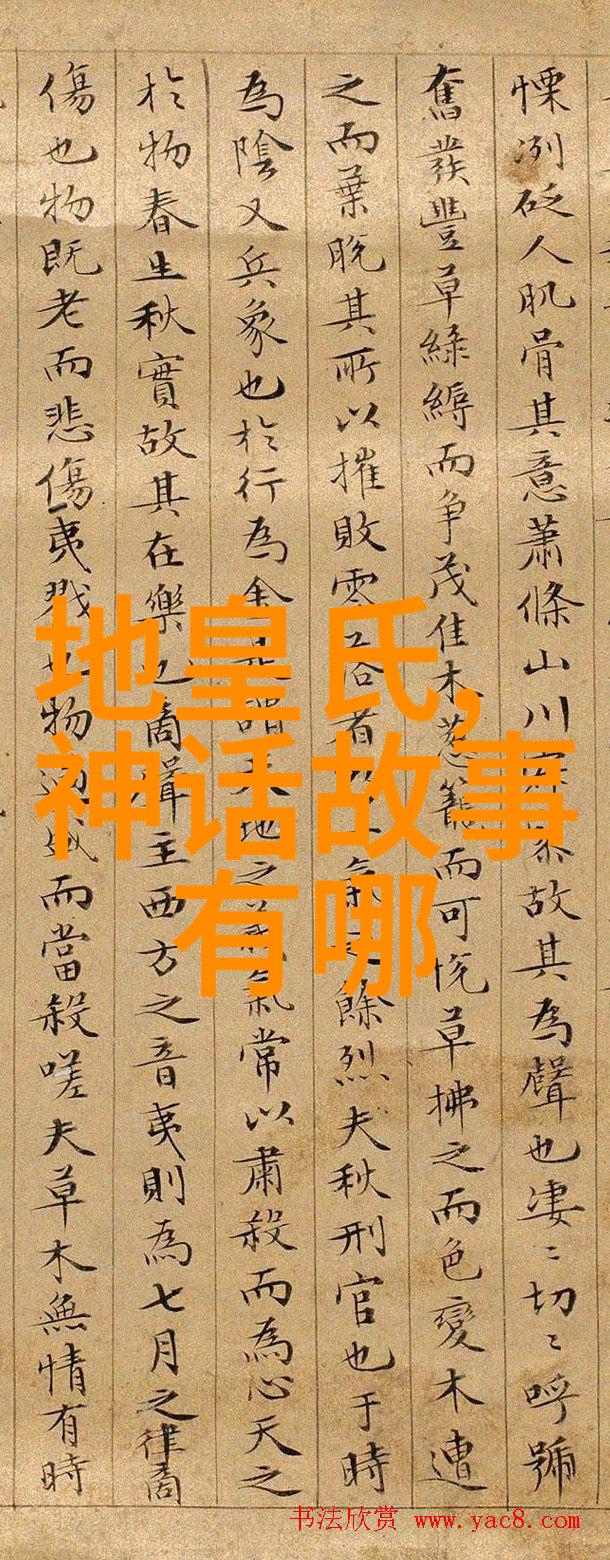 慄冽砭人肌骨其意蕭條山川故其為聲也淒〻切〻呼號
奮發豐草綠縟而爭茂佳木葱籠而可悅草拂之而色變木遭
之而葉脫其所以摧敗零落者餘烈夫秋刑官也于時
為陰又兵象也於行為金天地之氣常以肅殺而為心天之
於物春生秋實故其在樂也商聲主西方之音夷則為七月之律商
傷也物既老而悲傷夷戮也物過盛而當殺嗟夫草木無情有時
地皇氏,
神话故事
有哪
书法欣赏 www.yac8.com